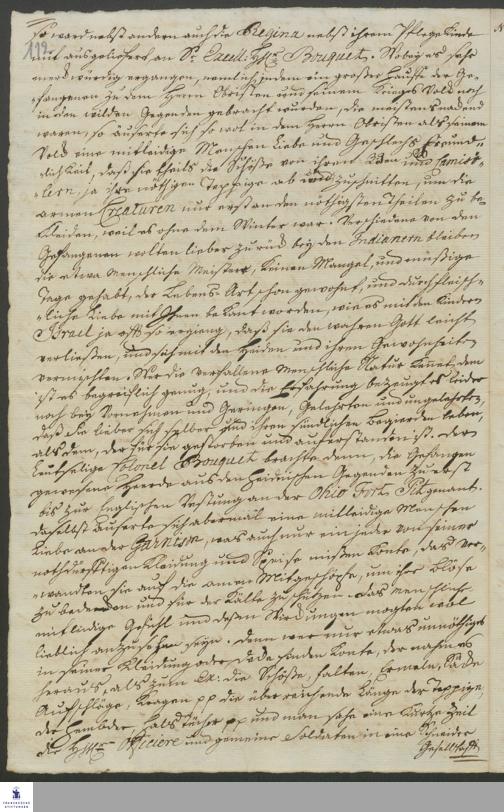 So ward nebst andern auch die Regina nebst ihrem Pflege Kinde
112.
mit ausgeliefert an Sr. Excell: Bouquet. Wobey es sehr
merckwürdig ergangen, nemlich, indem ein grosser Hauffe der Ge-
fangenen zu dem Herrn Obristen und seinem Kriegs Volck noch
in den wilden Gegenden gebracht wurden, die meistens nackend
waren, so äuserte sich so wol in dem Herrn Obristen als seinem
Volck eine mitleidige Menschen Liebe und Freund-
lichkeit, daß sie theils die Schöße von ihren und Camisö-
lern, ja ihre nöthigen Teppige ab und zuschnitten, um die
armen Creaturen nur erst an den nöthigsten Theilen zu be-
kleiden, weil es ohne dem Winter war. Verschiedene von den
Gefangenen wolten lieber zurück bey den Indianern bleiben
die etwa Menschliche Meister, keinen Mangel, und müßige
Tage gehabt, der Lebens-Art schon gewohnt, und durch fleisch-
liche Liebe mit Ihnen bekant worden, wie es mit den Kindern
Israel ja oft so ergieng, daß sie den wahren Gott leicht
verließen, und sich mit den Heiden und ihren Gewohnheiten
vermischten. Wer die verfallene Menschliche Natur kennet, dem
ist es begreiflich genug, und die Erfahrung bezeuget es leider
noch bey Vornehmen und Geringen, Gelehrten und ungelehrten,
daß sie lieber sich selber und ihren sündlichen Begierden leben,
als dem, der für sie gestorben und auferstanden ist. Der
leutselige Colonel Bouquet brachte denn, die Gefangen
gewesene Heerde aus den Heidnischen Gegenden zu erst
bis zur Englischen Vestung an der Ohio Fort Pitt genant.
daselbst äuserte sich abermal eine mitleidige Menschen
Liebe an der Garnison, was auch nur ein jeder von seiner
nothdürfftigen Kleidung und Speise missen konte, das ver-
wandten sie auf die armen Mitgeschöpfe, um ihre Blöse
zu bedecken und für der Kälte zu schützen. Das menschliche
mitleidige Gefühl und deßen Würckungen mogten wol
lieblich anzusehen seyn. denn wer nur etwas unnöthiges
in seiner Kleidung oder finden konte, der nahm es
heraus, als zum Ex: die Schöße, falten, Ermeln,
Aufschläge, Kragen pp die überreichende Länge der Teppige,
der Hembder, Halstücher pp und man sahe eine kurtze Zeit
die Officiere und gemeine Soldaten in eine Schneider
Gesellschaft
FRANCKESCHE
STIFTUNGEN